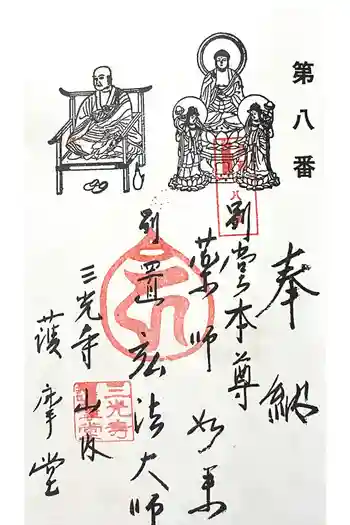 第八番
奉納
別堂本尊
薬師如来
別置弘法大師
三光寺山内
護摩堂
三光寺